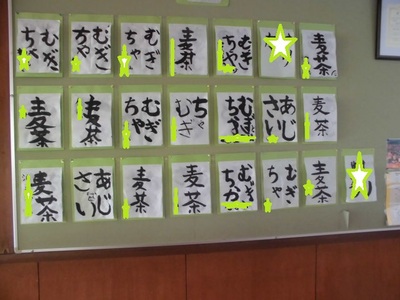 むぎ
ちゃ
むぎ
ちゃ
むぎ
ちゃ
麦茶
むぎ
ちゃ
麦茶
麦茶
麦茶
むぎ
ちゃ
ちゃ
むぎ
あじ
さい
麦茶
麦茶
あじ
さい
麦茶
麦茶
むぎ
むぎ
ちゃ
麦茶